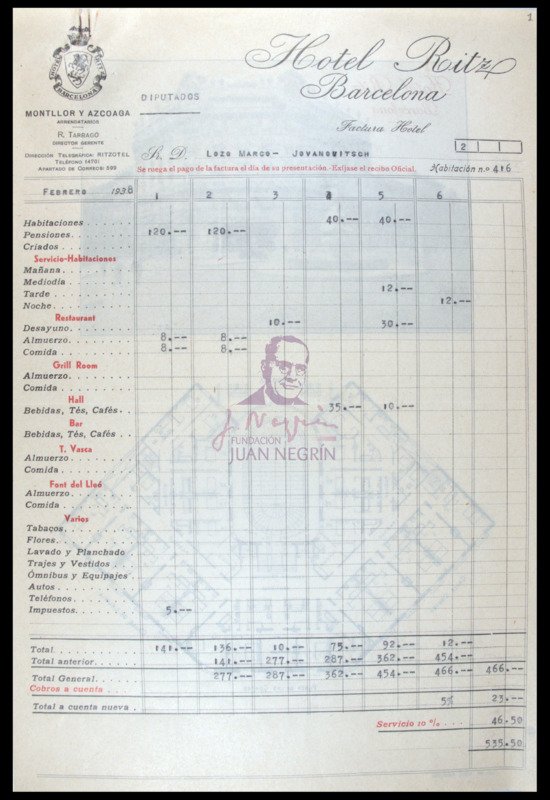 1
HOTEL RITZ
BARCELONA
Hotel Ritz
Barcelona
MONTLLOR Y AZCOAGA
ARRENDATARIOS
R. TARRAGÓ
DIRECTOR GERENTE
DIRECCIÓN TELEGRÁFICA: RITZOTEL
TELÉFONO 14701
APARTADO DE CORREOS 599
DIPUTADOS
Factura Hotel
2
S. D. LOZO MARCO- JOVANOWITSCH
Se ruega el pago de la factura el día de su presentación.-Exíjase el recibo Oficial. Habitación n.º 416
FEBRERO 1938 1 2 3 4 5 6
Habitaciones . . . . . . 40.-- 40.--
Pensiones. . . . . . . . 120.-- 120.--
Criados . . . . . . . . .
Servicio-Habitaciones
Mañana. . . . . . . . .
Mediodía . . . . . . . .
Tarde . . . . . . . . . 12.--
Noche. . . . . . . . . . 12.--
Restaurant
Desayuno. . . . . . . . 10.-- 30.--
Almuerzo . . . . . . . . 8.-- 8.--
Comida . . . . . . . . . 8.-- 8.--
Grill Room
Almuerzo. . . . . . . .
Comida . . . . . . . . .
Hall
Bebidas, Tés, Cafés. . . 35.-- 10.--
Bar
Bebidas, Tés, Cafés . . .
T. Vasca
Almuerzo. . . . . . . .
Comida . . . . . . . . .
Font del Lleó
Almuerzo. . . . . . . .
Comida . . . . . . . . .
Varios
Tabacos. . . . . . . . .
Flores. . . . . . . . . .
Lavado y Planchado
Trajes y Vestidos . . .
Ómnibus y Equipajes
Autos. . . . . . . . . .
Teléfonos. . . . . . . .
Impuestos. . . . . . . . 5.--
J. Negrín
FUNDACIÓN
JUAN NEGRÍN
Total. . . . . . . . . . 141.-- 136.-- 10.-- 75.-- 92.-- 12.--
Total anterior. . . . . . 141.-- 277.-- 287.-- 362.-- 454.--
Total General. . . . . . 277.-- 287.-- 362.-- 454.-- 466.-- 466.--
Cobros a cuenta . . . .
Total a cuenta nueva . 5% 23.--
Servicio 10 % . . . 46.50
535.50